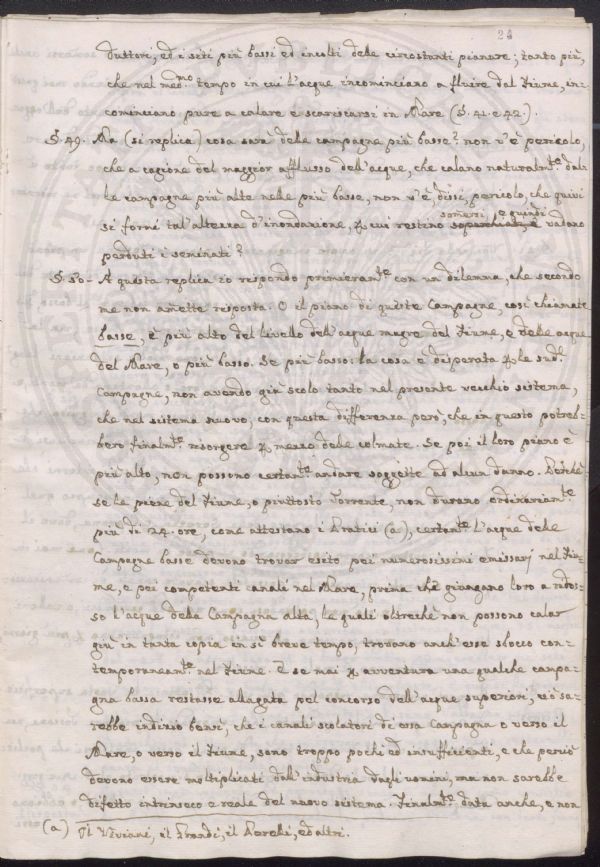 24
duttori, ed i siti più bassi ed incolti delle circostanti pianure; tanto più,
che nel med.mo tempo in cui l'acque incominciano a fluire dal Fiume, in=
cominciano pure a calare e scaricarsi in Mare (§. 41. e 42.).
§. 49. Ma (si replica) cosa sarà delle campagne più basse? non v'è pericolo,
che a cagione del maggior afflusso dell'acque, che calano naturalm.te dal=
le campagne più alte nelle più basse, non v'è, dissi, pericolo, che quivi
si formi tal'altezza d'inondazione, p cui restino sommersi, e quindi vadano
perduti i seminati?
§. 50. A questa replica io rispondo primieram.te con un dilemma, che secondo
me non amette risposta. O il piano di queste Campagne, così chiamate
basse, è più alto del livello dell'acque magre del Fiume, e delle acque
del Mare, o più basso. Se più basso: la cosa è disperata p le sud.e
Campagne, non avendo già scolo tanto nel presente vecchio sistema,
che nel sistema nuovo, con questa differenza però, che in questo potreb=
bero finalm.te risorgere p mezzo delle colmate. Se poi il loro piano è
più alto, non possono certam.te andare soggette ad alcun danno. Perchè
se le piene del Fiume, o piuttosto Torrente, non durano ordinariam.te
più di 24. ore, come attestano i Pratici (a), certam.te l'acque delle
Campagne basse devono trovar esito pei numerosissimi emissarj nel Fiu=
me, e pei competenti canali nel Mare, prima che giungano loro a ridos=
so l'acque della Campagna alta, le quali oltrechè non possono calar
giù in tanta copia in sì breve tempo, trovano anch'esse sbocco con=
temporaneam.te nel Fiume. E se mai p avventura una qualche campa=
gna bassa restasse allagata pel concorso dell'acque superiori, ciò sa=
rebbe indizio bensì, che i canali scolatori di essa Campagna o verso il
Mare, o verso il Fiume, sono troppo pochi ed insufficienti, e che perciò
devono essere moltiplicati dall'industria degli uomini, ma non sarebbe
difetto intrinseco e reale del nuovo sistema. Finalm.te data anche, e non
(a) Il Viviani, il Grandi, il Perelli, ed altri.